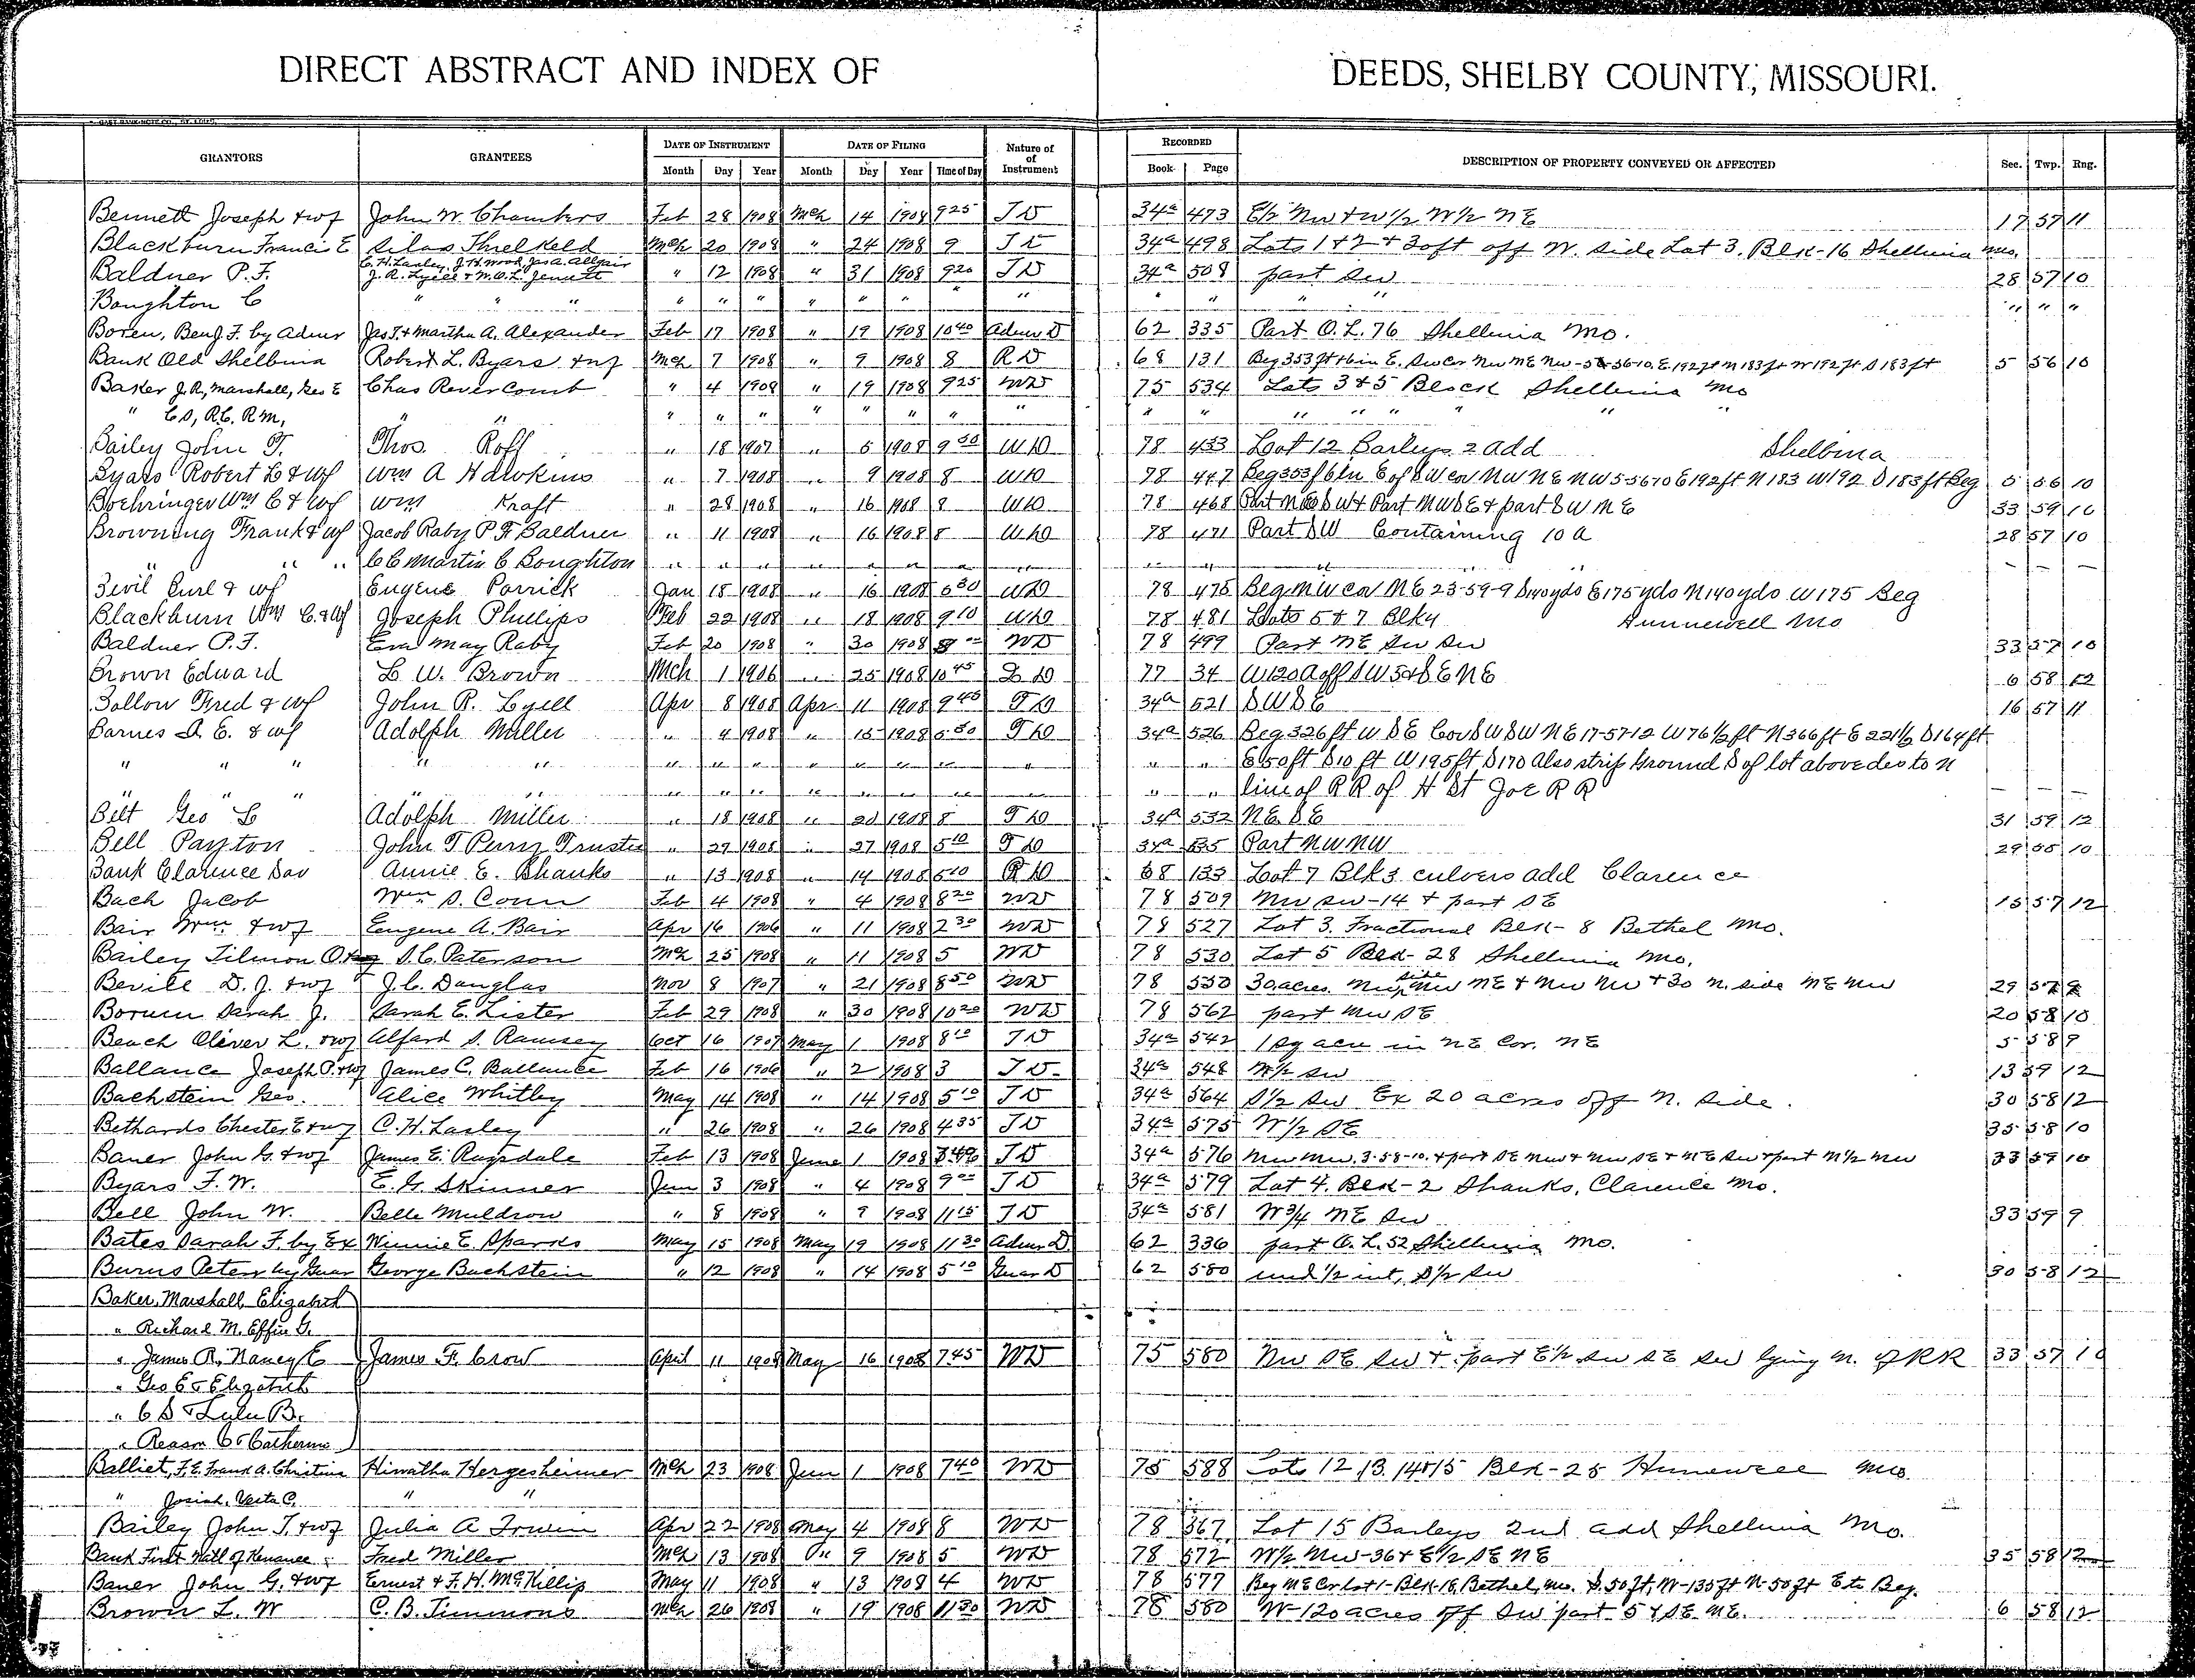 DIRECT ABSTRACT AND INDEX OF DEEDS, SHELBY COUNTY, MISSOURI.
GRANTORS GRANTEES DATE OF INSTRUMENT DATE OF FILING Nature of of Instrument RECORDED DESCRIPTION OF PROPERTY CONVEYED OR AFFECTED Sec. Twp. Rng.
Month Day Year Month Day Year Time of Day Book Page
Bennett Joseph & wf John W. Chambers Feb 28 1908 Mch 14 1908 9 25 T D 34a 473 E/2 NW & W 1/2 W/2 NE 17 57 11
Blackburn Franci E Silas Threlkeld Mch 20 1908 " 24 1908 9 T D 34a 498 Lots 1 & 2 & 30ft off W. side Lot 3. Blk-16 Shelbina Mo.
Baldner P. F. C. H. Lasley, J. H. Wood, Jas A. J. R. Lyell & M. O. L. " 12 1908 " 31 1908 9 20 T D 34a 508 part SW 28 57 10
Boughton C " " " " " " " " " " " " " " " " " " "
Boren, Benj. F. by Admr Jas T. & Martha A. Alexander Feb 17 1908 " 19 1908 10 40 Admr D 62 335 Part O. L. 76 Shelbina Mo.
Bank Old Shelbina Robert L. Byars & wf Mch 7 1908 " 9 1908 8 R D 68 131 Beg 353 ft & 6 in E. SW Cor NW NE NW-5-56-10. E. 192 ft N 183 ft W 192 ft S 183 ft 5 56 10
Baker J. R, Marshall, Geo E Chas Revercomb " 4 1908 " 19 1908 9 25 WD 75 534 Lots 3 & 5 Block Shelbina Mo
" C S, R. C. R M, " " " " " " " " " " " " " " " " " " "
Bailey John T. Thos. Roff " 18 1907 " 5 1908 9 WD 78 433 Lot 12 Baileys 2 add Shelbina
Byars Robert L & Wf Wm A Hawkins " 7 1908 " 9 1908 8 WD 78 447 Beg 353 f 6 in E of SW cor NW NE NW 5-56 10 E 192 ft N 183 W 192 S 183 ft Beg 5 56 10
Boehringer Wm C & Wf Wm Kraft " 28 1908 " 16 1908 8 WD 78 468 Part N E S W & Part N W S E & part S W N E 33 59 10
Browning Frank & wf Jacob Raby P. F. Baldner " 11 1908 " 16 1908 8 WD 78 471 Part SW Containing 10 a 28 57 10
" " " C C Martin C Boughton " " " " " " " " " " "
Bevil Burl & wf Eugene Parrick Jan 18 1908 " 16 1908 WD 78 475 Beg NW cor NE 23-59-9 S 140 yds E 175 yds N 140 yds W 175 Beg
Blackburn Wm C. & Wf Joseph Phillips Feb 22 1908 " 18 1908 9 10 WD 78 481 Lots 5 & 7 Blk 4 Hunnewell Mo
Baldner P. F. Eva May Raby Feb 20 1908 " 30 1908 WD 78 499 Part NE SW SW 33 57 10
Brown Edward L W. Brown Mch 1 1906 " 25 1908 10 45 77 34 W 120 A off SW 5 & S E N E 6 58 12
Bollow Fred & wf John R. Lyell Apr 8 1908 Apr 11 1908 9 40 T D 34a 521 S W S E 16 57 11
Barnes A. E. & wf Adolph Miller " 4 1908 " 15 1908 T D 34a 526 Beg 326 ft W S E Cor S W S W N E 17-57-12 W 76 1/2 ft N 366 ft E 221 1/2 S 164 ft
" " " " " " " " " " " " " " " " E 50 ft S 10 ft W 195 ft S 170 Also strip Ground S of lot above des to N
" " " " " " " " " " " " " " " line of R R of H St Joe R R
Bilt Geo L Adolph Miller " 18 1908 " 20 1908 8 T D 34a 532 N E S E 31 59 12
Bell Payton John T Perry Trustee " 27 1908 " 27 1908 5 10 T D 34a 535 Part NW NW 29 10
Bank Clarence Sav Annie E. Shanks " 13 1908 " 14 1908 R D 68 133 Lot 7 Blk 3 culvers add Clarence
Bach Jacob Wm S. Conn Feb 4 1908 " 4 1908 8 20 WD 78 509 NW SW-14 & part SE 15 57 12
Bair Wm & wf Eugene A. Bair Apr 16 1906 " 11 1908 2 30 WD 78 527 Lot 3. Fractional Blk-8 Bethel Mo.
Bailey Tilmon O. & wf S. C. Paterson Mch 25 1908 " 11 1908 5 WD 78 530 Lot 5 Blk-28 Shelbina Mo.
Bevill D. J. & wf J. C. Douglas Nov 8 1907 " 21 1908 8 50 WD 78 550 30 acres side NW NE & NW NW & 30 N. side NE NW 29 57
Borum Sarah J. Sarah E. Lister Feb 29 1908 " 30 1908 10 20 WD 78 562 part NW SE 20 58 10
Beach Oliver L. & wf Alfard S. Ramsey Oct 16 1907 May 1 1908 8 10 T D 34a 542 1 sq acre in NE Cor. NE 5 58 9
Ballance Joseph P. & wf James C. Ballance Feb 16 1906 " 2 1908 3 T D. 34a 548 W/2 SW 13 59 12
Bachstein Geo. Alice Whitby May 14 1908 " 14 1908 5 10 T D 34a 564 S 1/2 SW Ex 20 acres off N. side. 30 58 12
Bethards Chester E & wf C. H. Lasley " 26 1908 " 26 1908 4 35 T D 34a 575 W 1/2 SE 35 58 10
Baner John G. & wf James E. Ragsdale Feb 13 1908 June 1 1908 T D 34a 576 NW NW. 3-58-10. & part SE NW & NW SE & NE SW & part N 1/2 NW 33 59 10
Byars F. W. E. G. Skinner Jun 3 1908 " 4 1908 9 00 T D 34a 579 Lot 4. Blk-2 Shanks, Clarence Mo.
Bell John W. Belle Muldrow " 8 1908 " 9 1908 11 15 T D 34a 581 W 3/4 NE SW 33 59 9
Bates Sarah F. by Ex Winnie E. Sparks May 15 1908 May 19 1908 11 30 Admr D. 62 336 part O. L. 52 Shelbina Mo.
Burns Peter by Guar George Bachstein " 12 1908 " 14 1908 5 10 Guar D 62 580 und 1/2 int, S 1/2 SW 30 58 12
Baker, Marshall, Elizabeth
" Richard M. Effie G.
" James R, Nancy E James F. Crow April 11 1908 May 16 1908 7 45 WD 75 580 NW SE SW & part E 1/2 SW SE SW lying N. of RR 33 57 10
" Geo E & Elizabeth
" C S & Lulu B.
" Reason C & Catherine
Balliet, F. E. Frank A. Christina Hiwatha Hergesheimer Mch 23 1908 Jun 1 1908 7 40 WD 75 588 Lots 12 13 14 & 15 Blk-25 Hunewell Mo.
" Josiah, Veita C. " "
Bailey John T. & wf Julia A Irwin Apr 22 1908 May 4 1908 8 WD 78 567 Lot 15 Baileys 2nd add Shelbina Mo.
Bank First Natl of Kewanee Fred Miller Mch 13 1908 " 9 1908 5 WD 78 572 W 1/2 NW-36 & E 1/2 SE NE 35 58 12
Baner John G. & wf Ernest & F. H. McKillip May 11 1908 " 13 1908 4 WD 78 577 Beg NE Cr Lot 1-Blk-18, Bethel, Mo. S. 50 ft, W-135 ft N-50 ft E to Beg.
Brown L. W C. B. Timmons Mch 26 1908 " 19 1908 11 30 WD 78 580 W-120 acres off SW part 5 & SE NE. 6 58 12